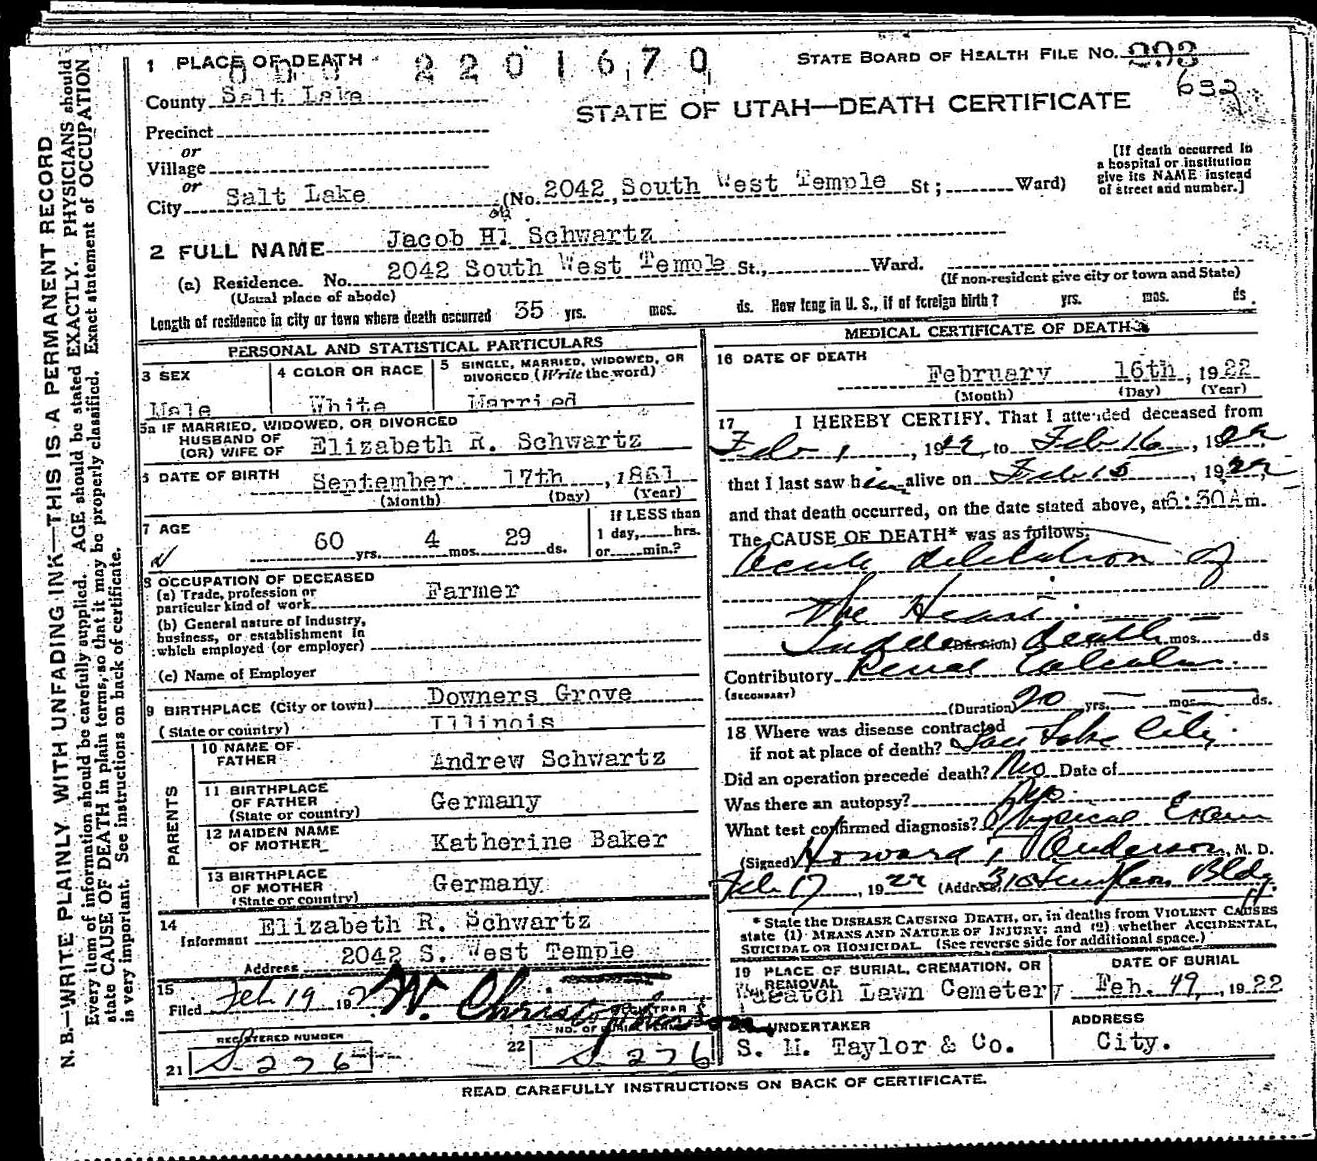 1 PLACE OF DEATH
000 2201670
STATE BOARD OF HEALTH FILE NO. 293
632
County Salt Lake
STATE OF UTAH—DEATH CERTIFICATE
Precinct
or
Village
or
City Salt Lake (No. 2042, South West Temple St; Ward)
[If death occurred in
a hospital or institution
give its NAME instead
of street and number.]
2 FULL NAME Jacob Hl Schwartz
(a) Residence. No. 2042 South West Temple St., Ward.
(Usual place of abode)
(If non-resident give city or town and State)
Length of residence in city or town where death occurred 35 yrs. mos. ds. How long in U. S., if of foreign birth? yrs. mos. ds.
PERSONAL AND STATISTICAL PARTICULARS
3 SEX
Male
4 COLOR OR RACE
White
5 SINGLE, MARRIED, WIDOWED, OR
DIVORCED (Write the word)
Married
5a IF MARRIED, WIDOWED, OR DIVORCED
HUSBAND OF
(OR) WIFE OF Elizabeth R. Schwartz
6 DATE OF BIRTH September 17th, 1861
(Month) (Day) (Year)
7 AGE
60 yrs. 4 mos. 29 ds.
If LESS than
1 day, hrs.
or min.?
8 OCCUPATION OF DECEASED
(a) Trade, profession or
particular kind of work Farmer
(b) General nature of Industry,
business, or establishment in
which employed (or employer)
(c) Name of Employer
9 BIRTHPLACE (City or town) Downers Grove
(State or country) Illinois
PARENTS
10 NAME OF
FATHER Andrew Schwartz
11 BIRTHPLACE
OF FATHER
(State or country) Germany
12 MAIDEN NAME
OF MOTHER Katherine Baker
13 BIRTHPLACE
OF MOTHER
(State or country) Germany
14
Informant Elizabeth R. Schwartz
Address 2042 S. West Temple
15
Filed Feb 19 192 W. Christopherson
REGISTRAR
REGISTERED NUMBER
21 S-276
22 S-276
MEDICAL CERTIFICATE OF DEATH
16 DATE OF DEATH
February 16th, 1922
(Month) (Day) (Year)
17 I HEREBY CERTIFY. That I attended deceased from
Feb 1, 1922, to Feb 16, 1922,
that I last saw him alive on Feb 15, 1922,
and that death occurred, on the date stated above, at 6:30 A m.
The CAUSE OF DEATH* was as follows:
Acute dilatation of
the Heart.
Sudden (Duration) death mos. ds
Contributory Renal Calculus.
(SECONDARY)
(Duration) 20 yrs. — mos. — ds.
18 Where was disease contracted
if not at place of death? Salt Lake City.
Did an operation precede death? No Date of
Was there an autopsy? No.
What test confirmed diagnosis? Physical Exam
(Signed) Howard T Anderson, M. D.
Feb 17, 1922 (Address) 310 Templeton Bldg
* State the DISEASE CAUSING DEATH, or, in deaths from VIOLENT CAUSES
state (1) MEANS AND NATURE OF INJURY; and (2) whether ACCIDENTAL,
SUICIDAL OR HOMICIDAL. (See reverse side for additional space.)
19 PLACE OF BURIAL, CREMATION, OR
REMOVAL
Wasatch Lawn Cemetery
DATE OF BURIAL
Feb. 19, 1922
UNDERTAKER
S. M. Taylor & Co.
ADDRESS
City.
READ CAREFULLY INSTRUCTIONS ON BACK OF CERTIFICATE.
N. B.—WRITE PLAINLY, WITH UNFADING INK—THIS IS A PERMANENT RECORD
Every item of information should be carefully supplied. AGE should be stated EXACTLY. PHYSICIANS should
state CAUSE OF DEATH in plain terms, so that it may be properly classified. Exact statement of OCCUPATION
is very important. See instructions on back of certificate.